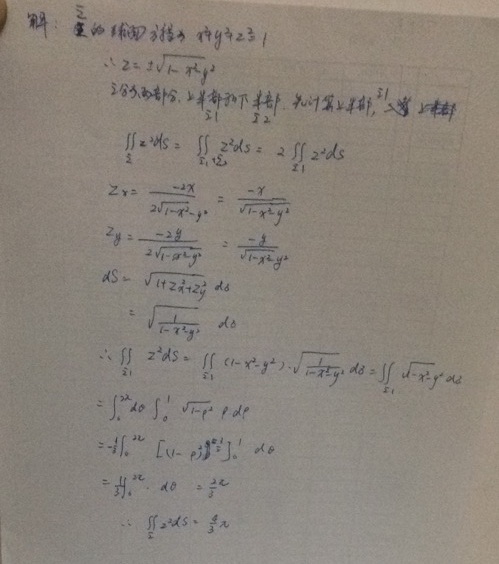 解: Σ的球面方程为 x²+y²+z²=1
∴ z=±√(1-x²-y²)
Σ分为两部分,上半部和下半部,先计算上半部,Σ1 上半部
Σ1 Σ2
∬_Σ z²dS = ∬_{Σ1+Σ2} z²dS = 2∬_{Σ1} z²dS
Zx = -2x/(2√(1-x²-y²)) = -x/√(1-x²-y²)
Zy = -2y/(2√(1-x²-y²)) = -y/√(1-x²-y²)
dS = √(1+Zx²+Zy²) dδ
= √(1/(1-x²-y²)) dδ
∴ ∬_{Σ1} z²dS = ∬_{Σ1} (1-x²-y²)·√(1/(1-x²-y²)) dδ = ∬_{Σ1} √(1-x²-y²) dδ
= ∫₀^{2π} dθ ∫₀¹ √(1-ρ²) ρ dρ
= -1/3 ∫₀^{2π} [(1-ρ²)]₀¹ dθ
= 1/3 ∫₀^{2π} · dθ = 2π/3
∴ ∬_Σ z²dS = 4/3 π